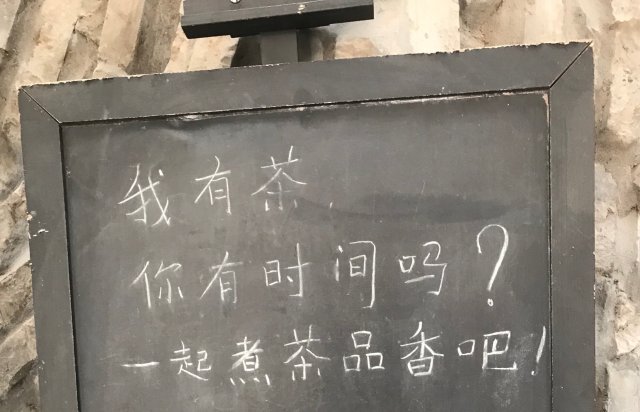 我有茶,
你有时间吗?
一起煮茶品香吧!